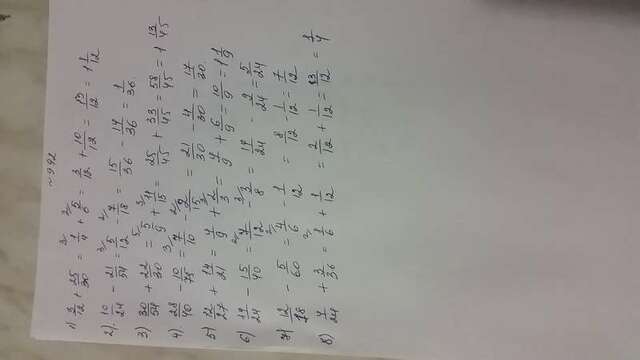 № 992
1) 3/12 + 25/30 = 3/ 1/4 + 2/ 5/6 = 3/12 + 10/12 = 13/12 = 1 1/12
2). 10/24 - 21/54 = 3/ 5/12 - 2/ 7/18 = 15/36 - 14/36 = 1/36.
3) 30/54 + 22/30 = 5/ 5/9 + 3/ 11/15 = 25/45 + 33/45 = 58/45 = 1 13/45
4) 28/40 - 10/75 = 3/ 7/10 - 2/ 2/15 = 21/30 - 4/30 = 17/30
5) 12/27 + 14/21 = 4/9 + 3/ 2/3 = 4/9 + 6/9 = 10/9 = 1 1/9
6) 14/24 - 15/40 = 2/ 7/12 - 3/ 3/8 = 14/24 - 9/24 = 5/24
7) 12/18 - 5/60 = 2/ 4/6 - 1/12 = 8/12 - 1/12 = 7/12
8) 4/24 + 3/36 = 2/ 1/6 + 1/12 = 2/12 + 1/12 = 3/12 = 1/4